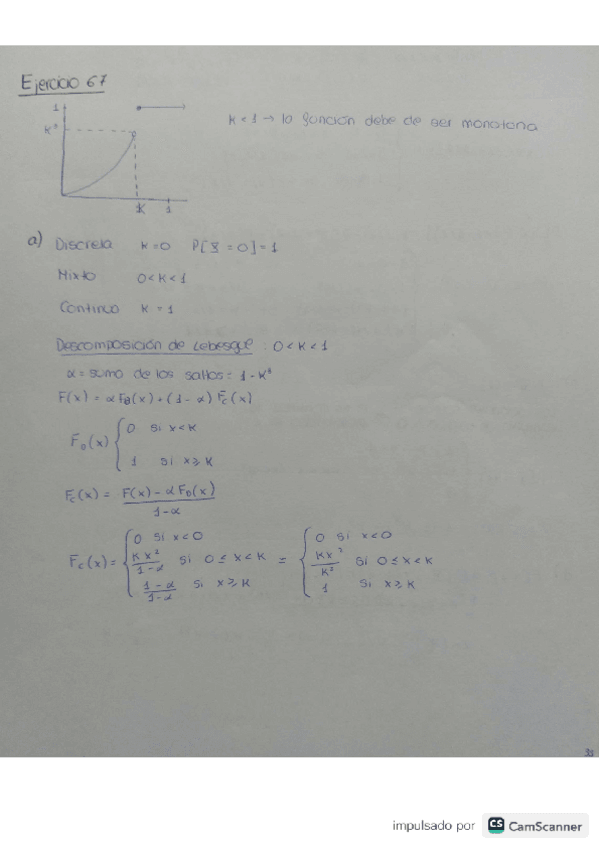 Ejercicio 67
1
K³
K
1
K < 1 → la función debe de ser monotona
a) Discreta K=0 P[X=0]=1
Mixto 0<K<1
Continuo K = 1
Descomposición de Lebesgue: 0<K<1
α = suma de los saltos = 1-K³
F(x) = αF_D(x) + (1-α) F_C(x)
F_D(x) { 0 si x<K
1 si x≥K
F_C(x) = (F(x) - αF_D(x))/(1-α)
F_C(x) = { 0 si x<0 = { 0 si x<0
Kx²/(1-α) si 0≤x<K Kx²/K³ si 0≤x<K
(1-α)/(1-α) si x≥K 1 si x≥K
33
impulsado por CS CamScanner